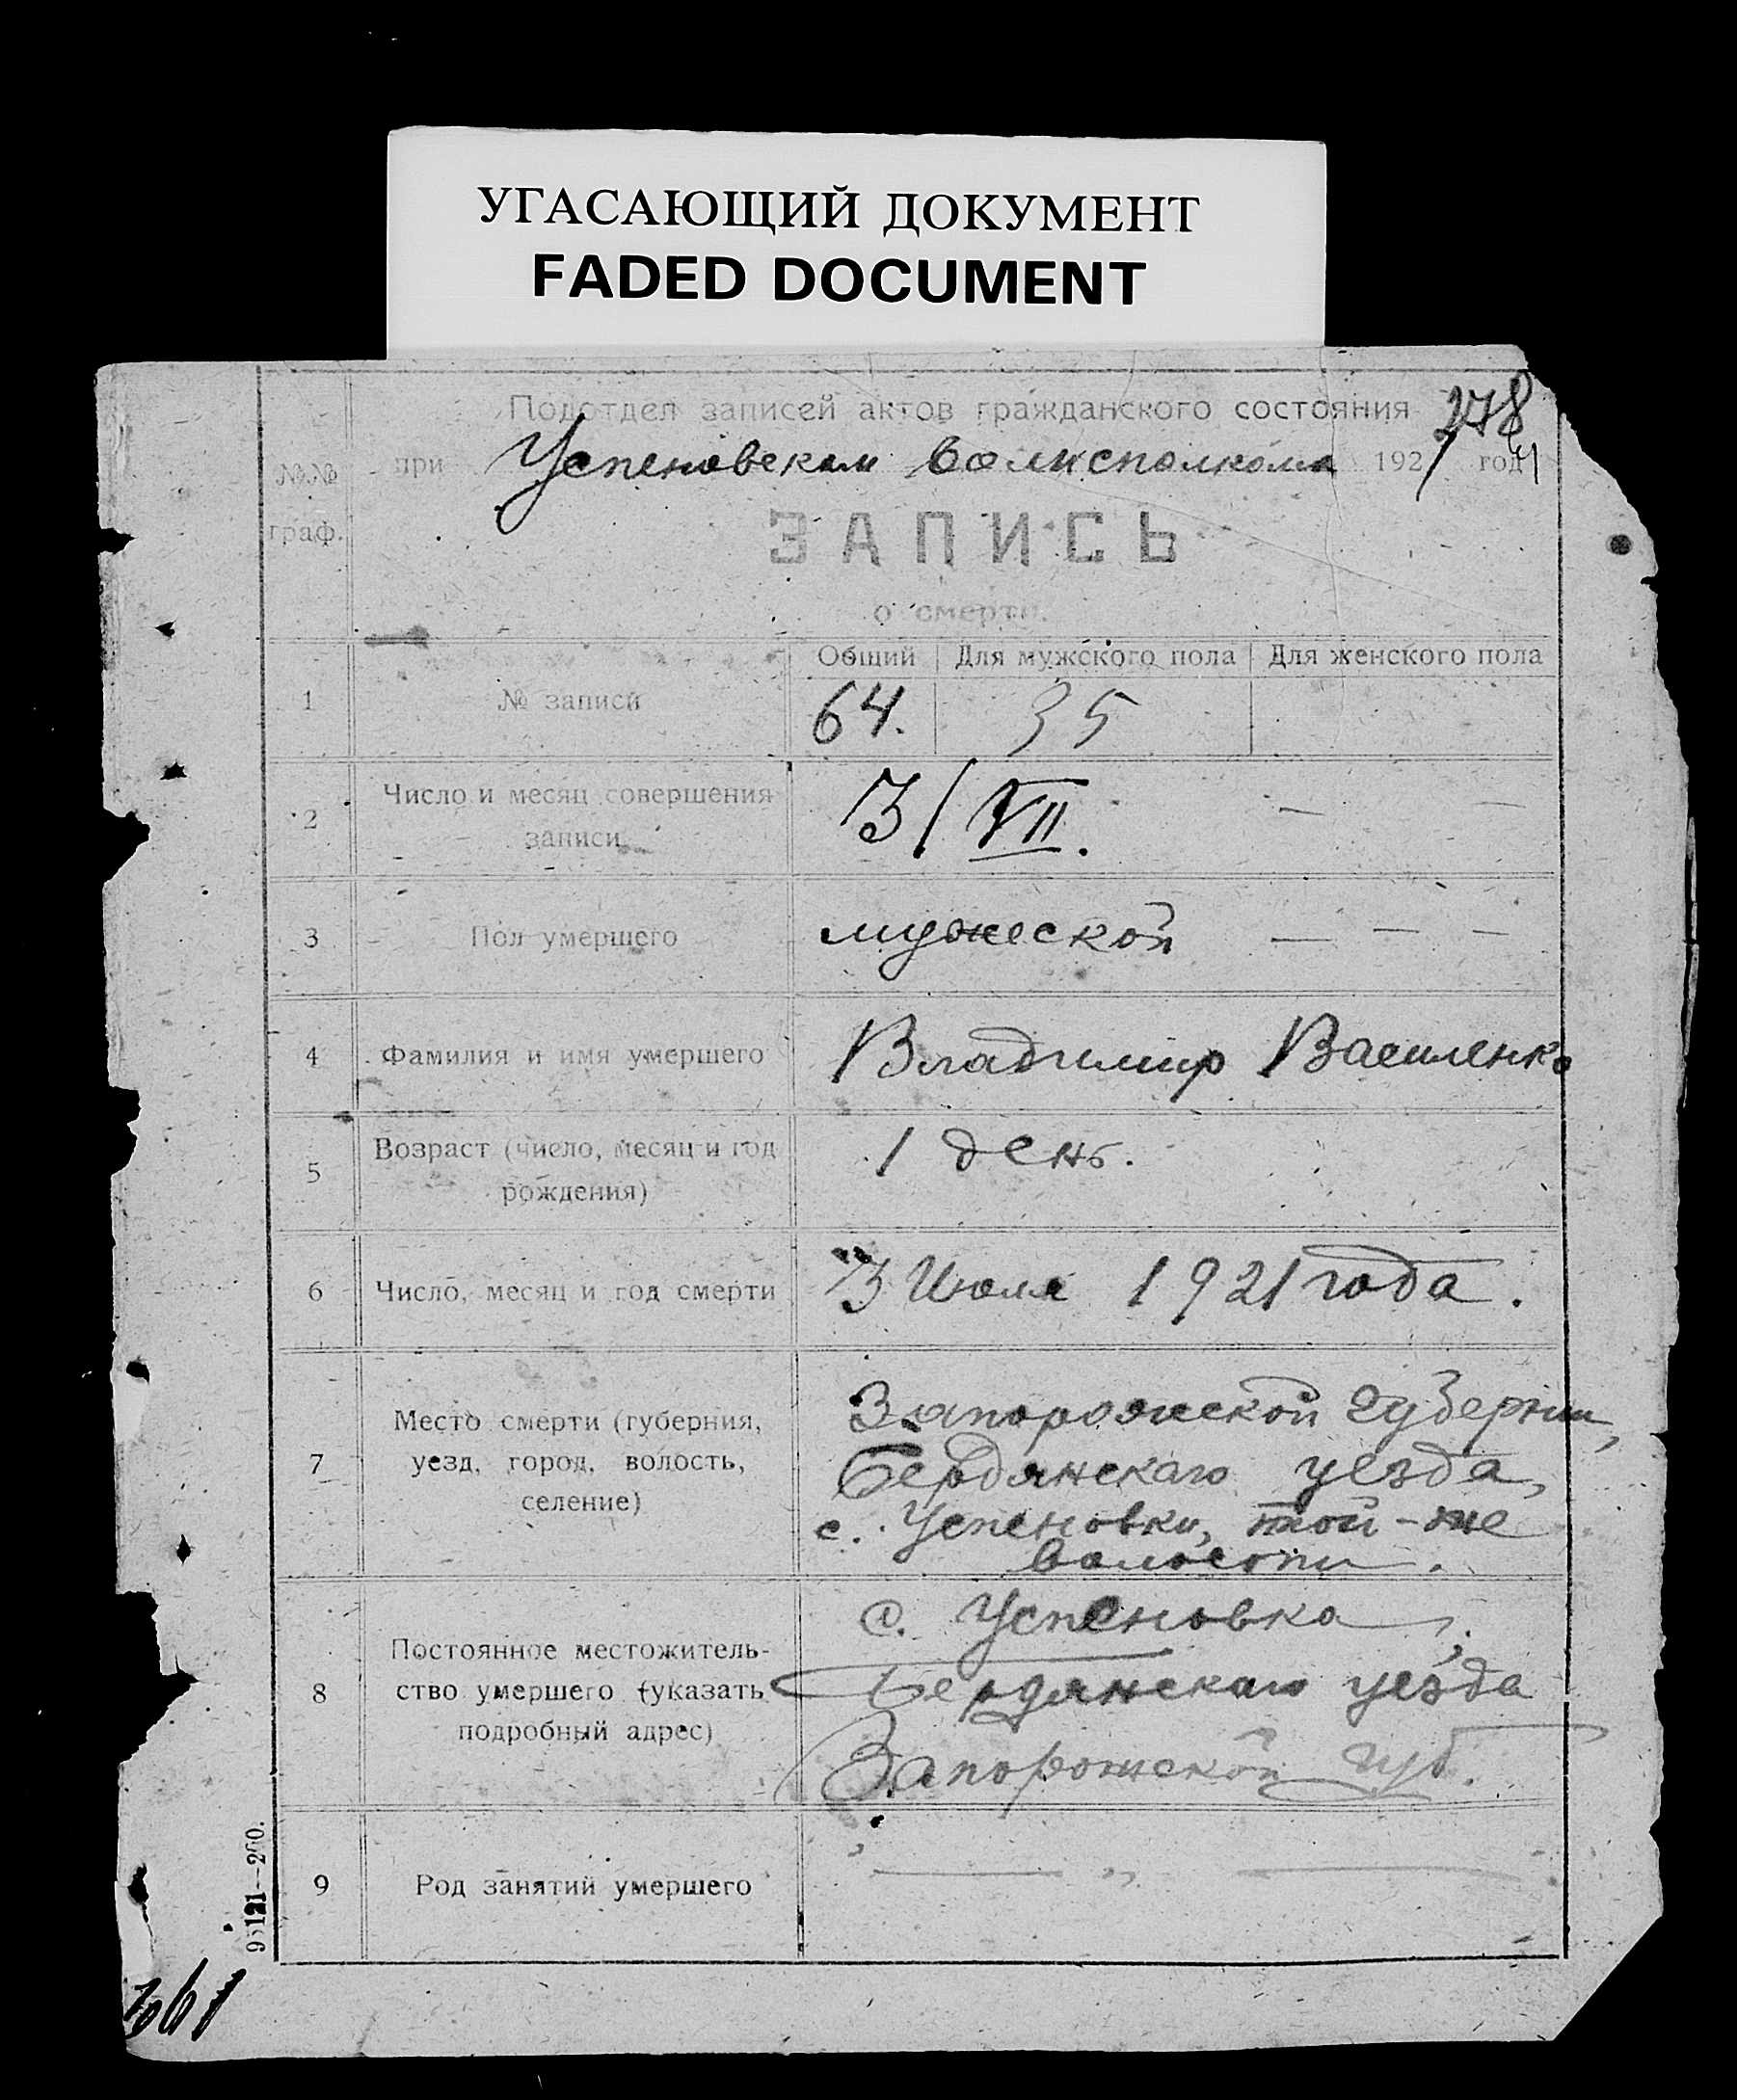 УГАСАЮЩИЙ ДОКУМЕНТ
FADED DOCUMENT
278
Подотдел записей актов гражданского состояния
при Успеновском волисполкома 1921 год
№№ граф.
ЗАПИСЬ
о смерти.
Общий Для мужского пола Для женского пола
1 № записи 64. 35
2 Число и месяц совершения
записи 3/VII.
3 Пол умершего мужеской
4 Фамилия и имя умершего Владимир Василенко
5 Возраст (число, месяц и год
рождения) 1 день.
6 Число, месяц и год смерти 3 Июля 1921 года.
7 Место смерти (губерния,
уезд, город, волость,
селение)
Запорожской губернии,
Бердянскаго уезда,
с. Успеновки, той-же
волости.
8 Постоянное местожитель-
ство умершего (указать
подробный адрес)
с. Успеновка,
Бердянскаго уезда
Запорожской губ.
9 Род занятий умершего — „ —